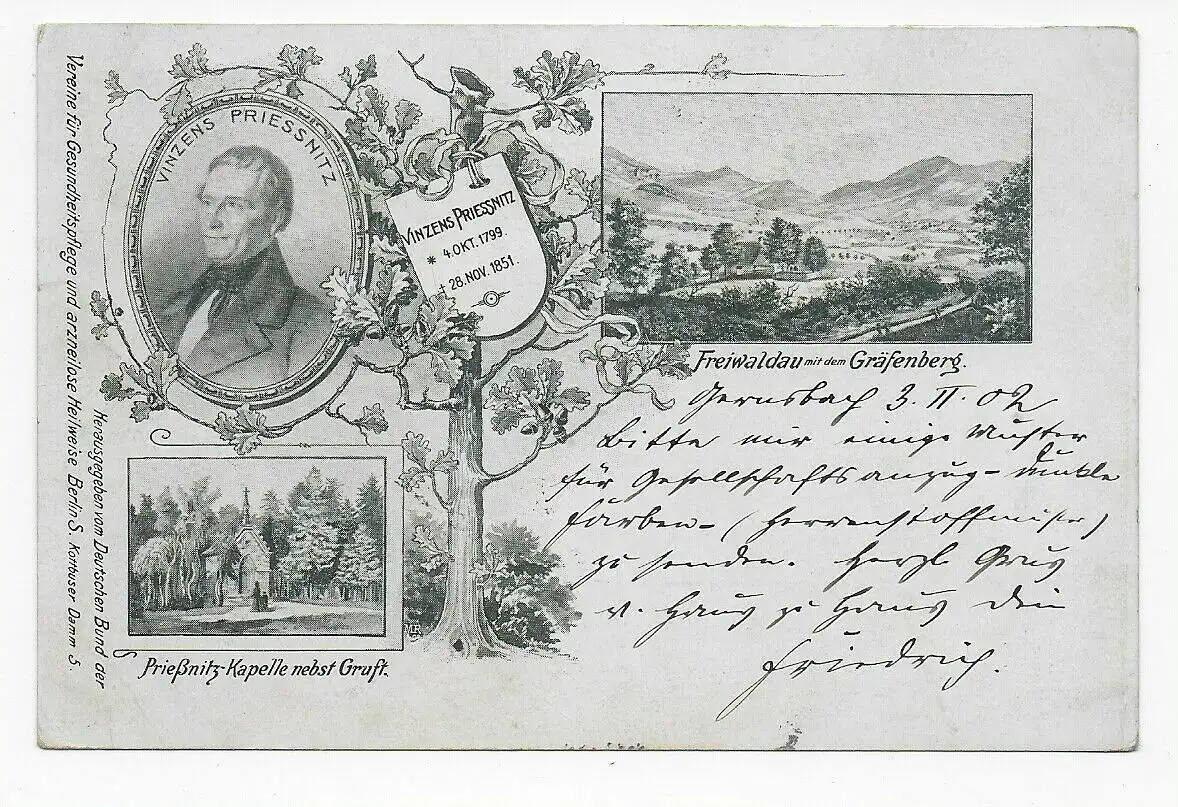 VINZENS PRIESSNITZ
VINZENS PRIESSNITZ
* 4. OKT. 1799.
† 28. NOV. 1851.
Freiwaldau mit dem Gräfenberg.
Prießnitz-Kapelle nebst Gruft.
Herausgegeben vom Deutschen Bund der
Vereine für Gesundheitspflege und arzneilose Heilweise Berlin S. Kottbuser Damm 5.
Gernsbach 3. II. 02
Bitte mir einige Muster
für Gesellschaftsanzug - dunkle
Farben - (Herrenstoffmuster)
zu senden. Herzl. Gruß
v. Haus zu Haus Dein
Friedrich.